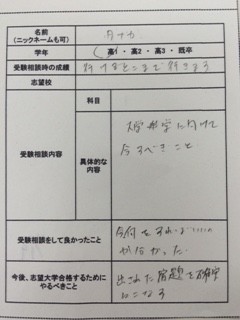 名前
(ニックネームも可)
学年
高1・高2・高3・既卒
受験相談時の成績
行けるところまで行きます
志望校
受験相談内容
科目
具体的な
内容
大学
に向けて
今すべきこと
受験相談をして良かったこと
今何をすれば
が分かった
今後、志望大学合格するために
やるべきこと
出された宿題を確実
にこなす